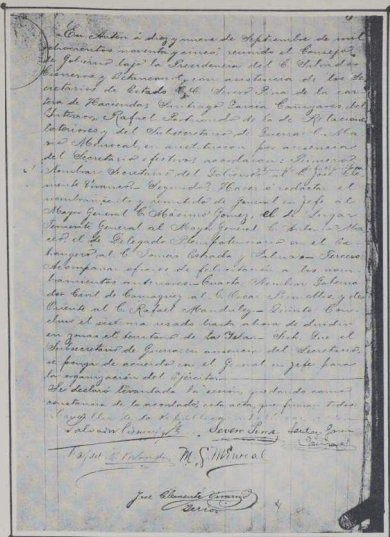 En Antón á diez y nueve de Septiembre de mil
ochocientos noventa y cinco, reunido el Consejo
de Gobierno bajo la Presidencia del C. Salvador
Cisneros y Betancourt, con asistencia de los Se-
cretarios de Estado C.C. Severo Pina de la car-
tera de Hacienda; Santiago García Cañizares del
Interior, Rafael Portuondo de la de Relaciones
Exteriores y del Subsecretario de Guerra C. Ma-
rio Menocal, en sustitución por ausencia
del Secretario efectivo; acordaron: Primero
Nombrar Secretario del Gobierno al C. José Cle-
mente Vivanco. Segundo: Hacer el
nombramiento y de General en Jefe al
Mayor General C. Máximo Gómez, el de Lugar
Teniente General al Mayor General C. Antonio Ma-
ceo, el de Delegado Plenipotenciario en el Ex-
trangero al C. Tomás Estrada y Palma. Tercero
Acompañar oficios de felicitación á los nom-
bramientos anteriores. Cuarto Nombrar Goberna-
dor Civil de Camagüey al C. y de
Oriente al C. Rafael Manduley. Quinto
el usado hasta ahora de dividir
en zonas el territorio de la Isla. Sexto Que el
Subsecretario de Guerra en ausencia del Secretario
se ponga de acuerdo con el General en Jefe para
la organización del Ejército.
Se declaró levantada la sesión, quedando para
constancia de lo acordado esta acta que firman todos
de la República
Salvador Cisneros B. Severo Pina Santiago García
Cañizares
Rafael M. Portuondo M. G. Menocal
José Clemente Vivanco
Secrio